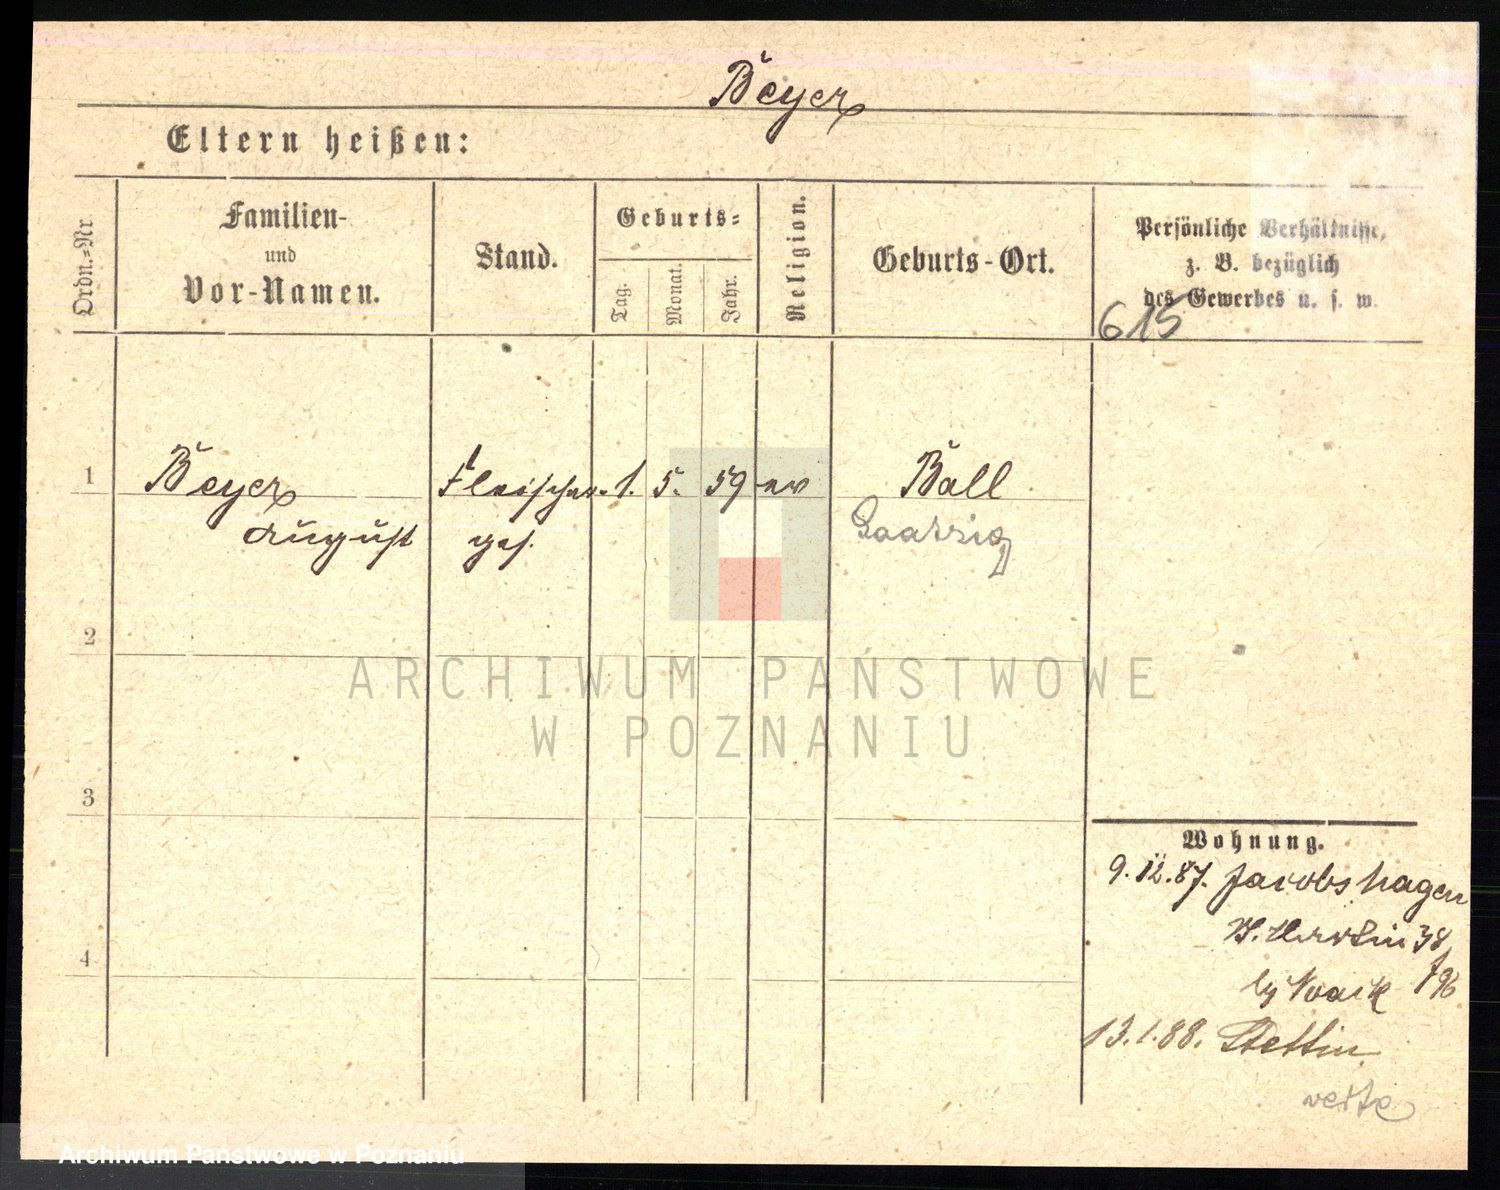 Beyer
Eltern heißen:
Ordn.-Nr.
Familien-
und
Vor-Namen.
Stand.
Geburts-
Tag.
Monat.
Jahr.
Religion.
Geburts-Ort.
Persönliche Verhältnisse,
z. B. bezüglich
des Gewerbes u. s. w.
615
1 Beyer Fleischer- 1. 5. 59 ev Ball
August ges. Saatzig
2
ARCHIWUM PAŃSTWOWE
W POZNANIU
3
Wohnung.
9.12.87. Jacobshagen
St. Martin 38
4
by Noack 96
13.1.88. Stettin
Archiwum Państwowe w Poznaniu